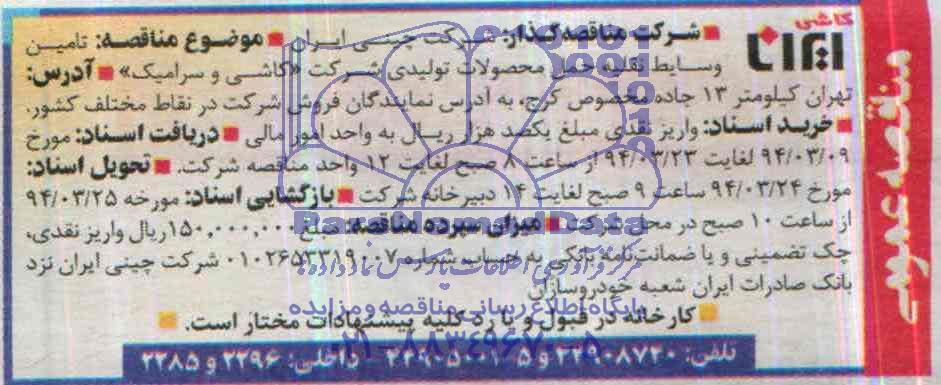 مناقصه عمومی
کاشی
ایرانا
■ شرکت مناقصه‌گذار: شرکت چینی ایران ■ موضوع مناقصه: تامین
وسایط نقلیه حمل محصولات تولیدی شرکت «کاشی و سرامیک» ■ آدرس:
تهران کیلومتر ۱۳ جاده مخصوص کرج، به آدرس نمایندگان فروش شرکت در نقاط مختلف کشور.
■ خرید اسناد: واریز نقدی مبلغ یکصد هزار ریال به واحد امور مالی ■ دریافت اسناد: مورخ
۹۴/۰۳/۰۹ لغایت ۹۴/۰۳/۲۳ از ساعت ۸ صبح لغایت ۱۲ واحد مناقصه شرکت. ■ تحویل اسناد:
مورخ ۹۴/۰۳/۲۴ ساعت ۹ صبح لغایت ۱۴ دبیرخانه شرکت ■ بازگشایی اسناد: مورخه ۹۴/۰۳/۲۵
از ساعت ۱۰ صبح در محل شرکت ■ میزان سپرده مناقصه: مبلغ ۱۵۰,۰۰۰,۰۰۰ ریال واریز نقدی،
چک تضمینی و یا ضمانت‌نامه بانکی به حساب شماره ۰۱۰۲۶۵۳۳۱۹۰۰۷ شرکت چینی ایران نزد
بانک صادرات ایران شعبه خودروسازان
■ کارخانه در قبول و یا رد کلیه پیشنهادات مختار است. ■
تلفن: ۴۴۹۰۸۷۴۰ و ۵ داخلی: ۲۲۹۶ و ۲۲۸۵
ParsNamadData
مرکز فرآوری اطلاعات پارس نماد داده ها
پایگاه اطلاع رسانی مناقصه و مزایده
۰۲۱-۸۸۳۴۹۶۷۰-۵